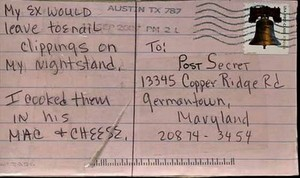 My Ex WOULD
leave toenail
clippings on
My nightstand.
I cooked them
IN his
MAC & CHEESE.
AUSTIN TX 787
PM 2 L
To:
Post Secret
13345 Copper Ridge Rd
Germantown,
Maryland
20874-3454